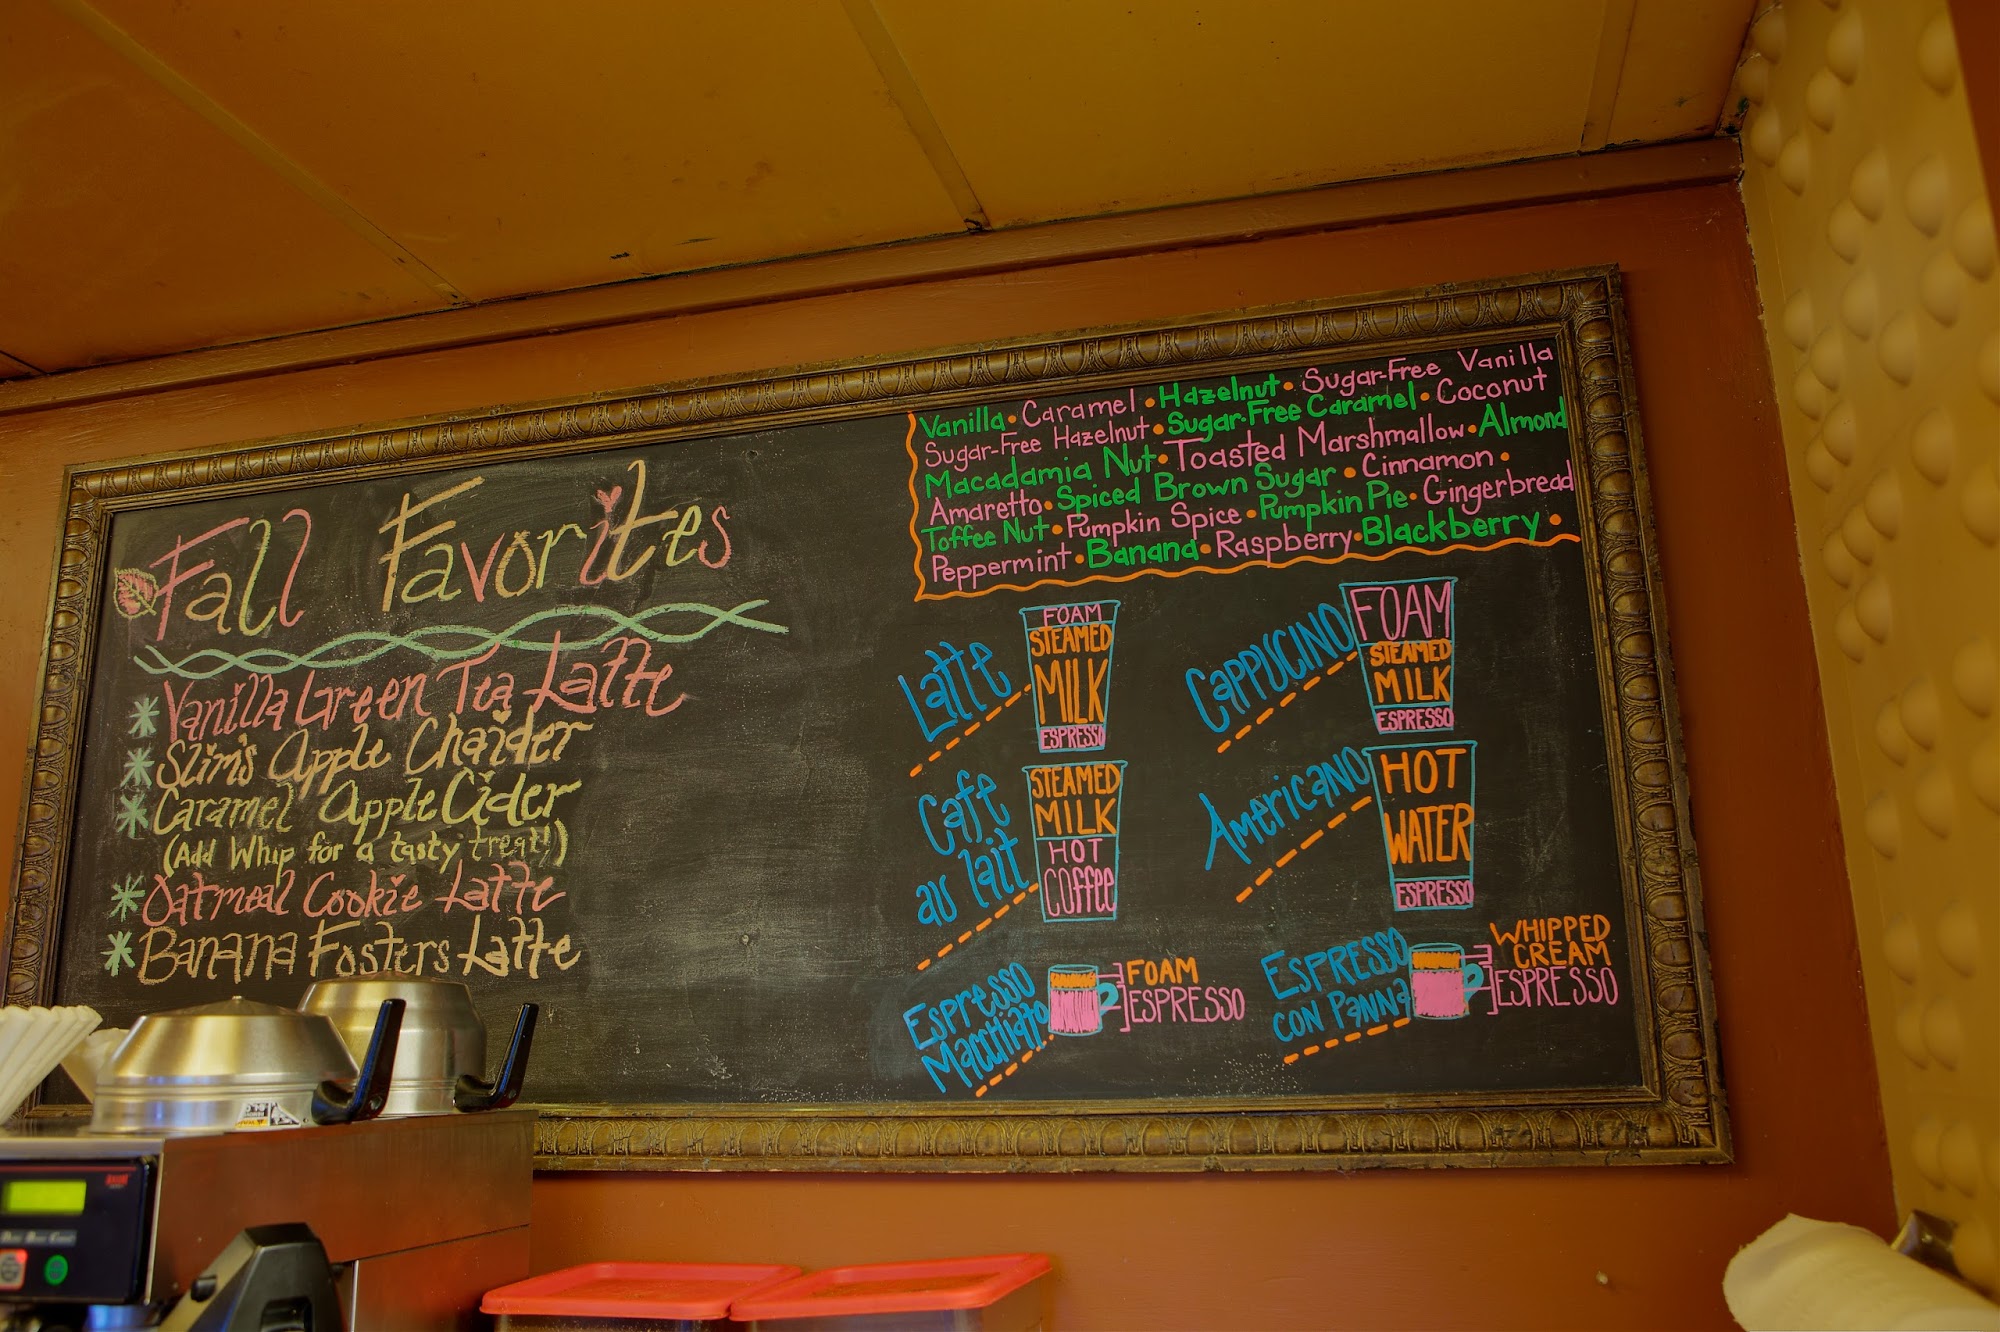 Fall Favorites
Vanilla Green Tea Latte
Slim's Apple Chaider
Caramel Apple Cider
(Add Whip for a tasty treat!)
Oatmeal Cookie Latte
Banana Fosters Latte
Vanilla • Caramel • Hazelnut • Sugar-Free Vanilla
Sugar-Free Hazelnut • Sugar-Free Caramel • Coconut
Macadamia Nut • Toasted Marshmallow • Almond
Amaretto • Spiced Brown Sugar • Cinnamon •
Toffee Nut • Pumpkin Spice • Pumpkin Pie • Gingerbread
Peppermint • Banana • Raspberry • Blackberry •
Latte
FOAM
STEAMED
MILK
ESPRESSO
CAPPUCINO
FOAM
STEAMED
MILK
ESPRESSO
Cafe
au lait
STEAMED
MILK
HOT
COffee
AmericaNO
HOT
WATER
ESPRESSO
Espresso
Macchiato
FOAM
ESPRESSO
ESPRESSO
CON PANNA
WHIPPED
CREAM
ESPRESSO